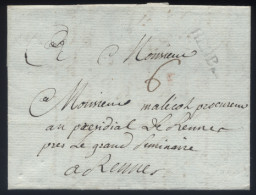 A Monsieur
6
Monsieur malecot procureur
au presidial De Rennes
pres le grand Seminaire
a Rennes